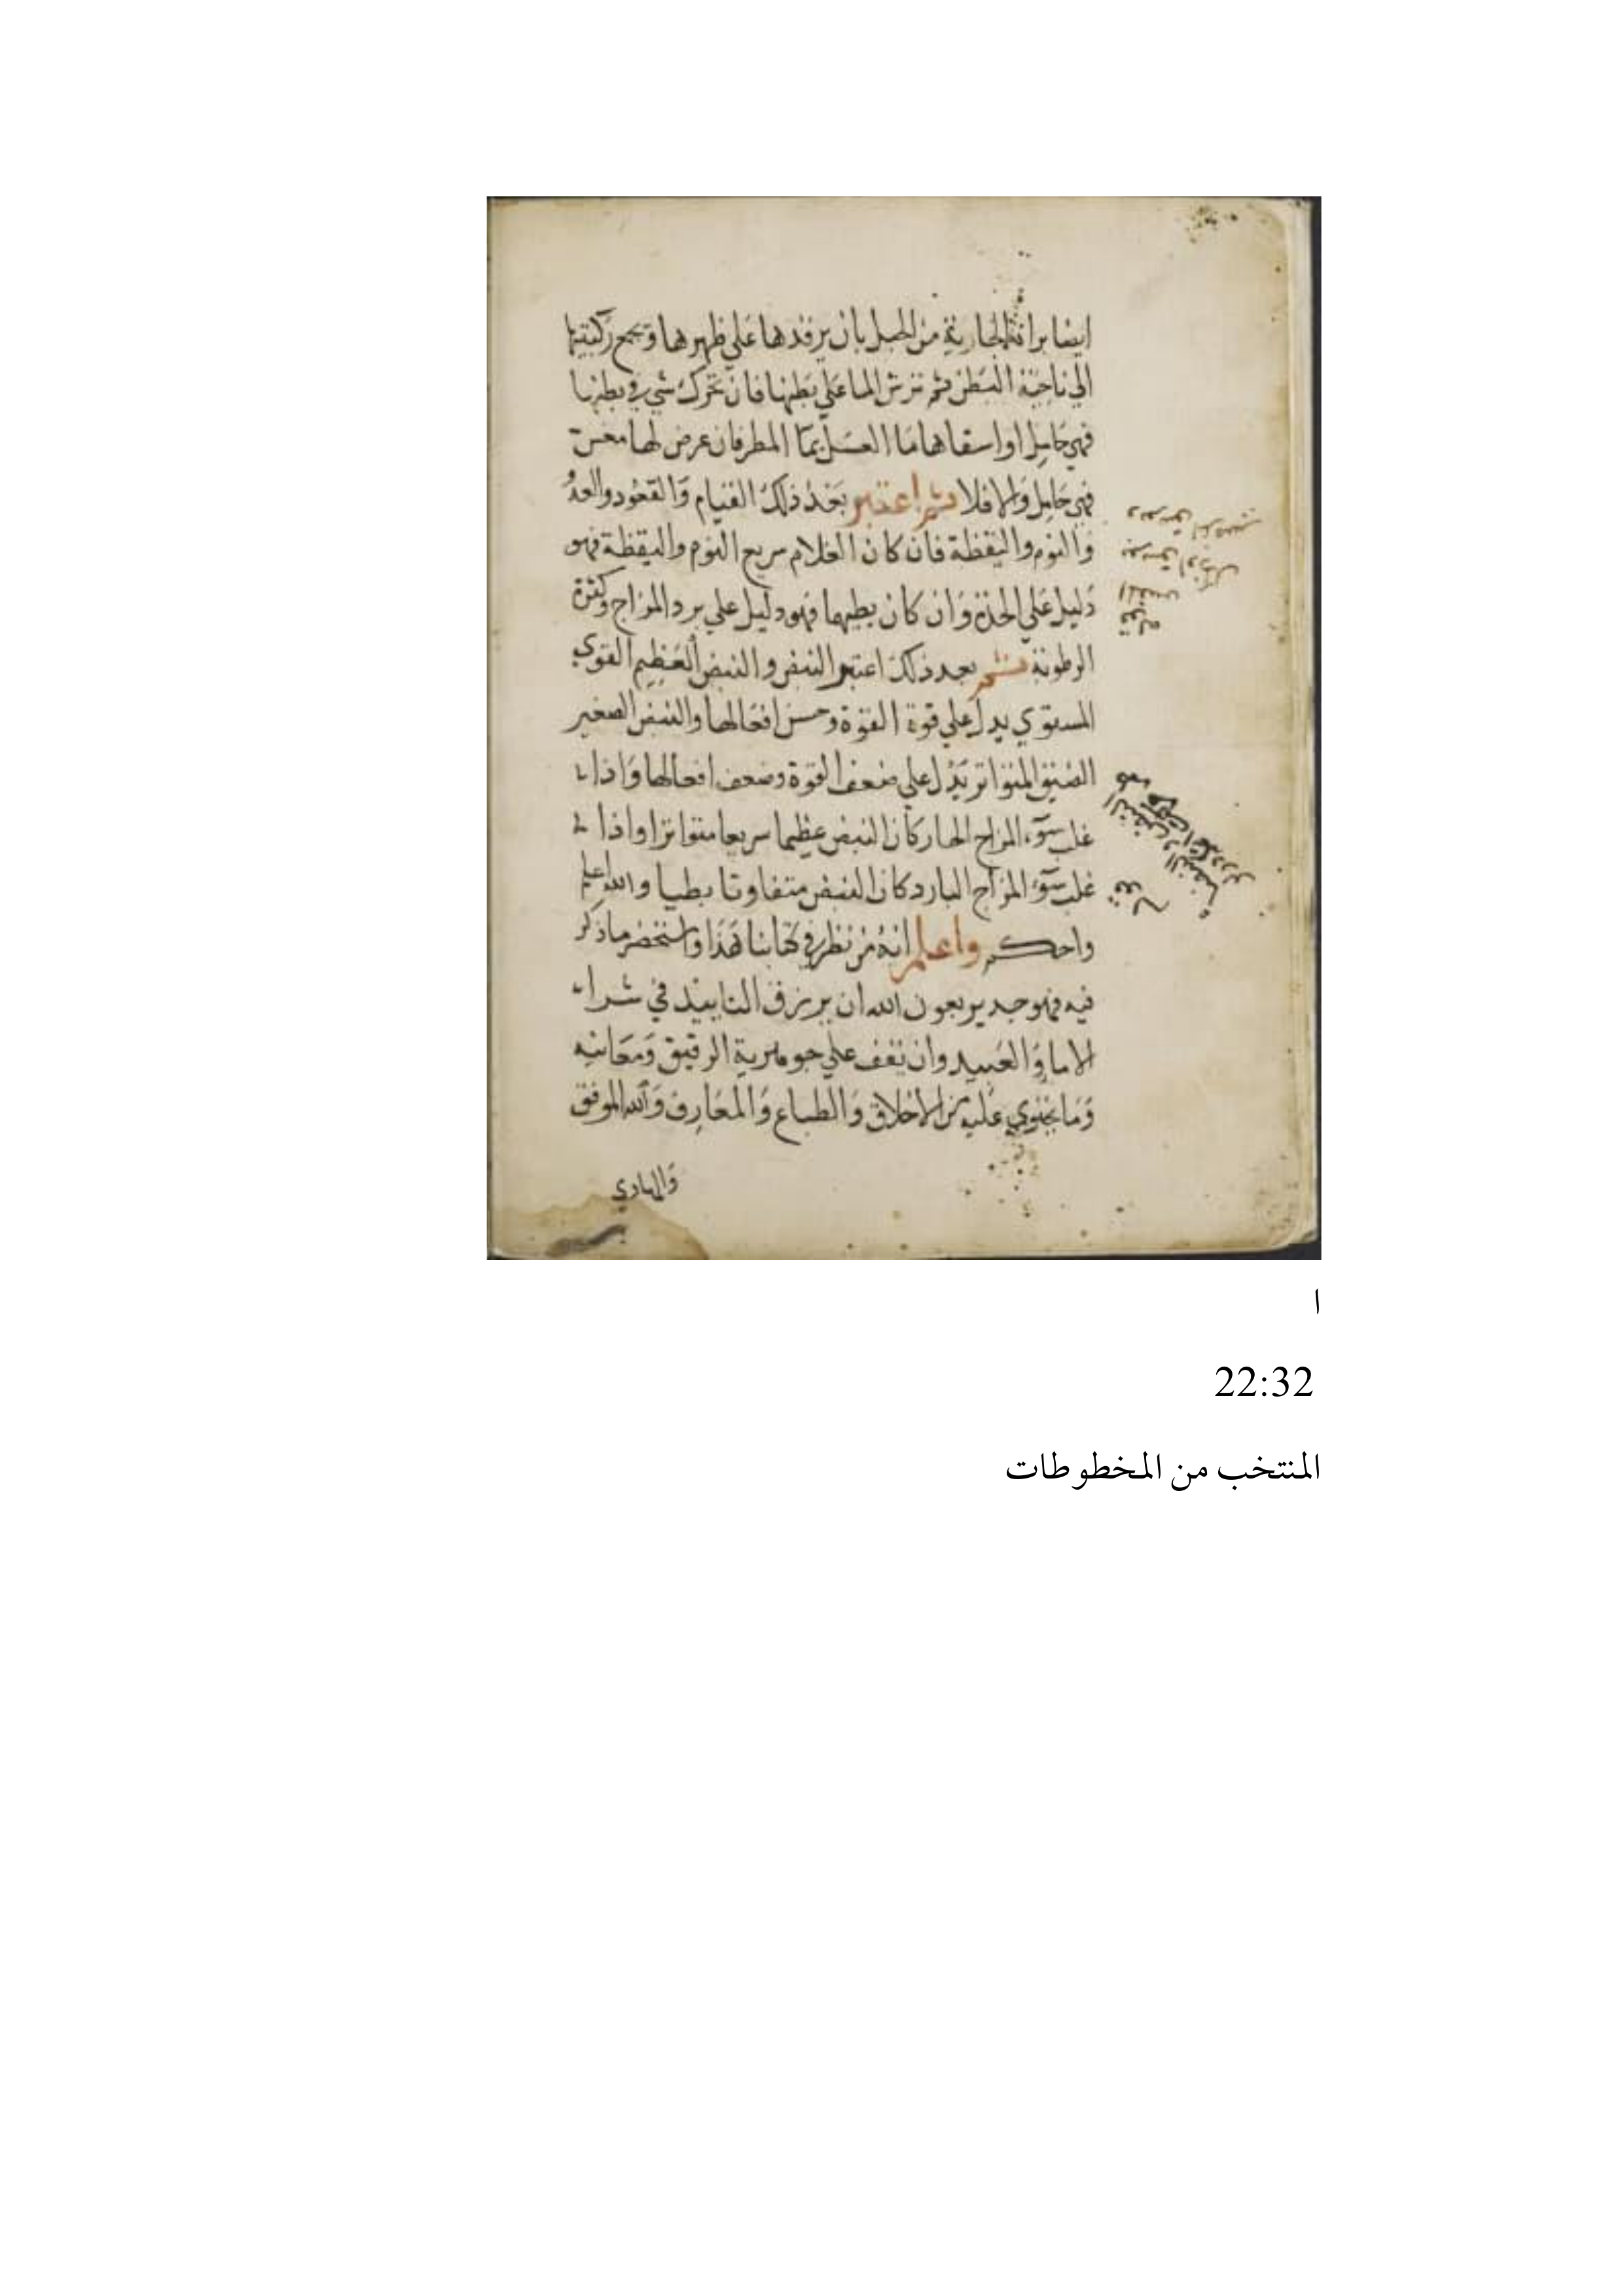 ايضا براة الجارية من الحبل بان يرقدها علي ظهرها وتجمع ركبتيها
الي ناحية البطن ثم ترش الما علي بطنها فان تحرك شي في بطنها
فهي حامل او اسقاها ما العسل بما المطر فان عرض لها مغس
فهي حامل والا فلا ثم اعتبر بعد ذلك القيام والقعود والعدو
والنوم واليقظة فان كان الغلام سريع النوم واليقظة فهو
دليل علي الحدة وان كان بطيها فهو دليل علي برد المزاج وكثرة
الرطوبة ثم بعد ذلك اعتبر النبض والنبض العظيم القوي
المستوي يدل علي قوة القوة وحسن افعالها والنبض الصغير
الضيق المتواتر يدل علي ضعف القوة وضعف افعالها واذا
غلب سوء المزاج الحار كان النبض عظيما سريعا متواترا واذا
غلب سوء المزاج البارد كان النبض متفاوتا بطيا والله اعلم
واحكم واعلم انه من نظر في كتابنا هذا واستحضر ما ذكر
فيه فهو جدير بعون الله ان يرزق التاييد في شرا
الاما والعبيد وان يقف علي جوهرية الرقيق ومعانيه
وما يحتوي عليه من الاخلاق والطباع والمعارف والله الموفق
والهادي
ا
22:32
المنتخب من المخطوطات